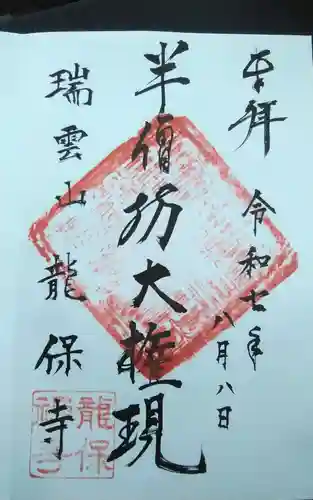 奉拝
令和七年
八月八日
半僧坊大権現
瑞雲山
龍保寺
龍保